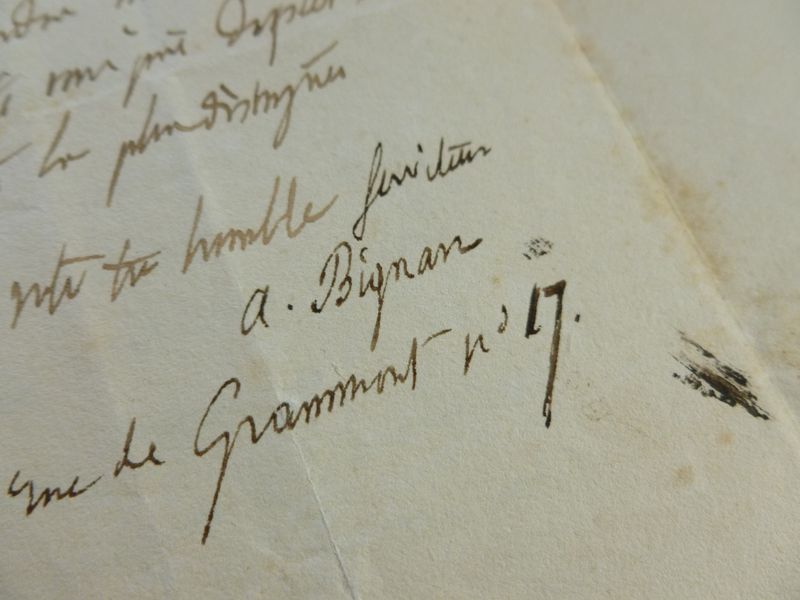 la plus distinguée
votre très humble serviteur
A. Bignan
rue de Grammont n° 17.